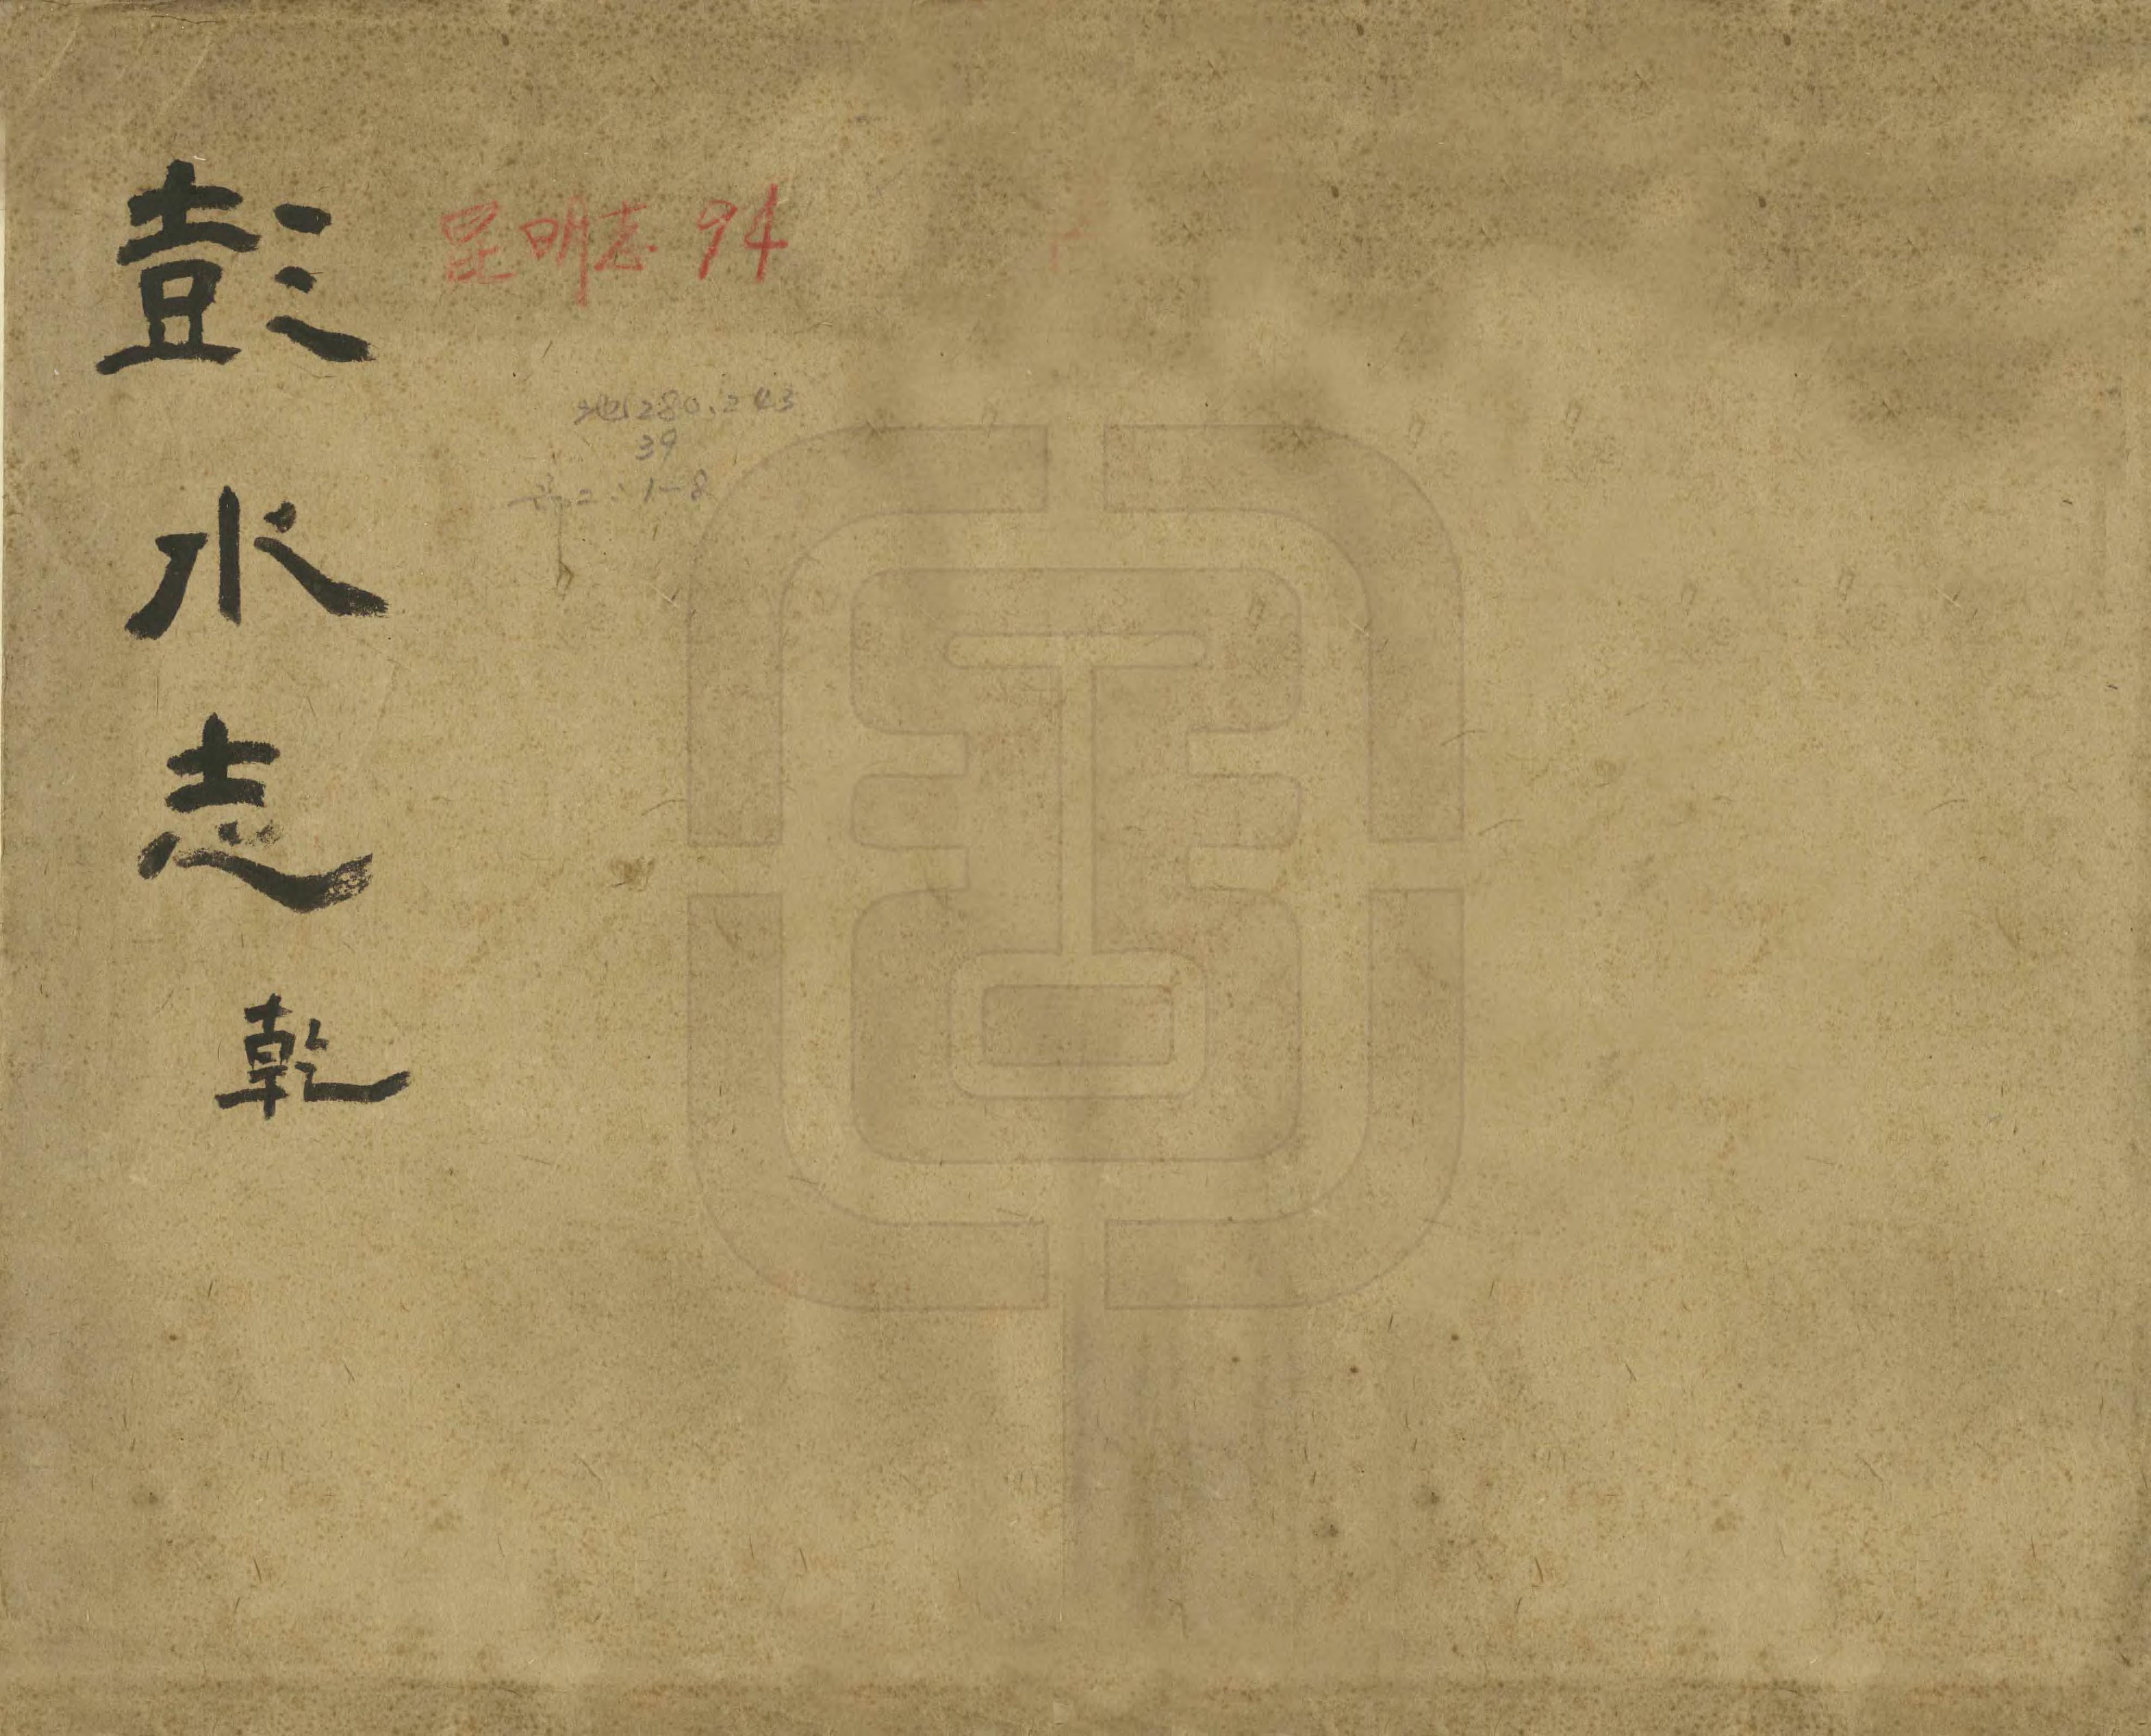 彭水志 乾
昆明志 94
地280.243
39
部二:1-8